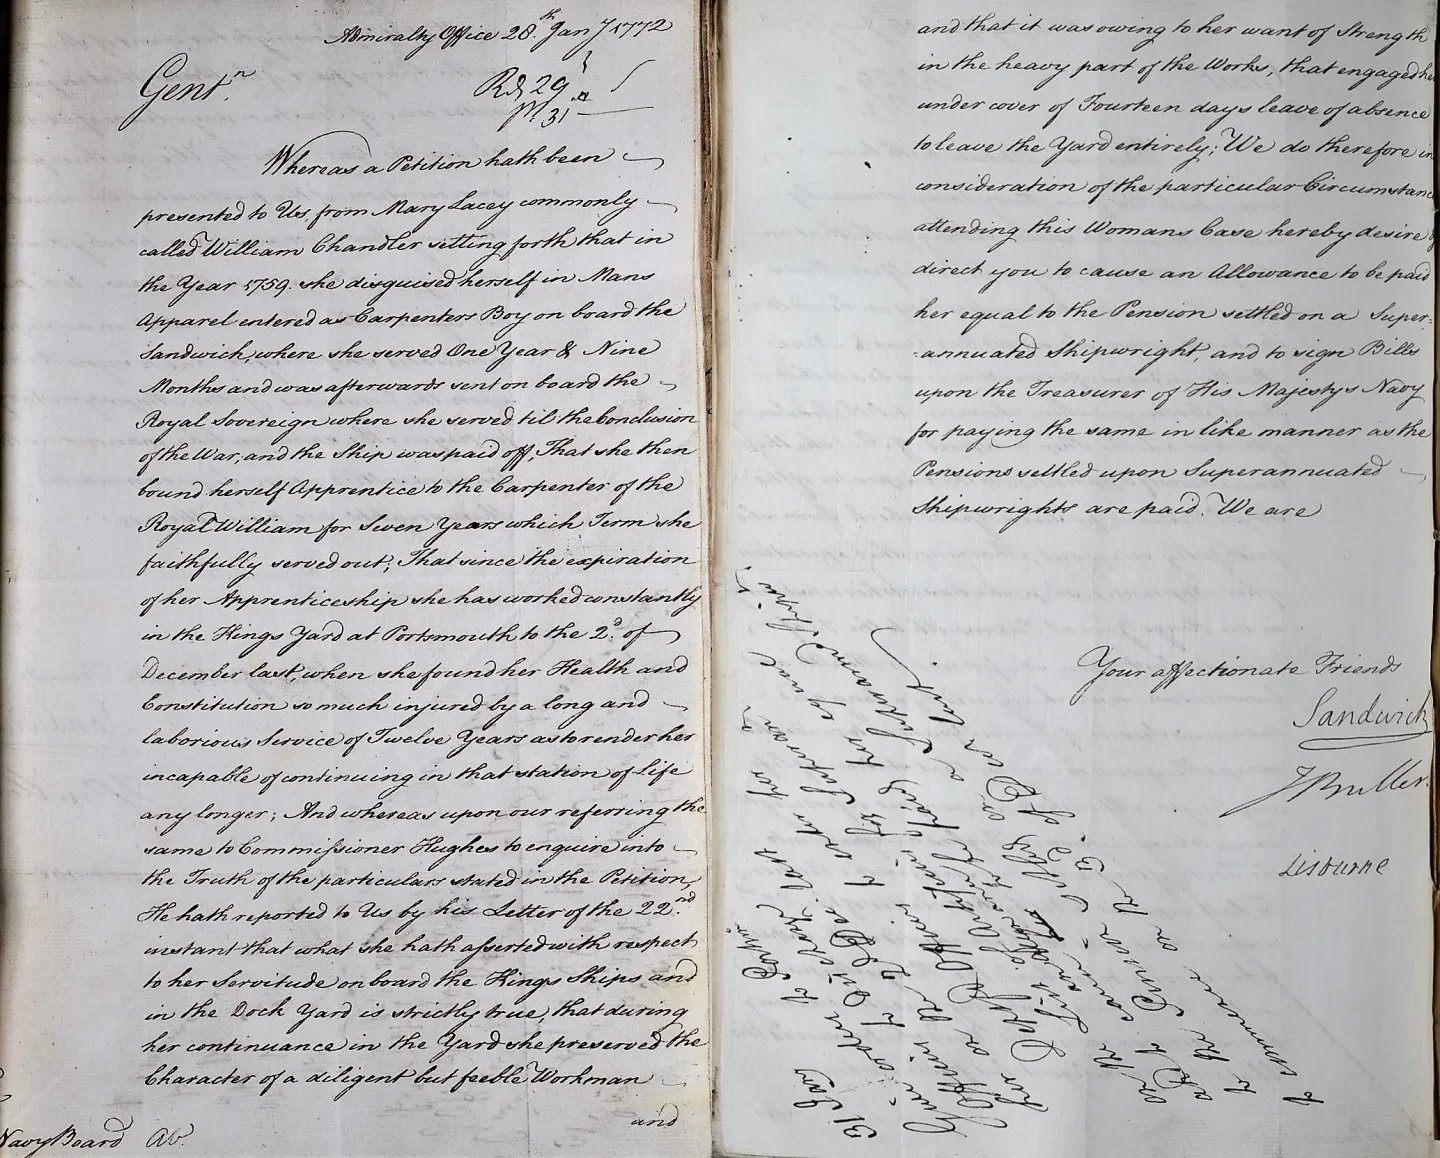 Admiralty Office 28.th Jany 1772
Gent.n
Rd 29
31
Whereas a Petition hath been
presented to Us, from Mary Lacey commonly
called William Chandler setting forth that in
the Year 1759. she disguised herself in Mans
Apparel entered as Carpenters Boy on board the
Sandwich, where she served One Year & Nine
Months and was afterwards sent on board the
Royal Sovereign where she served til the Conclusion
of the War, and the Ship was paid off, That she then
bound herself Apprentice to the Carpenter of the
Royal William for Seven Years which Term she
faithfully served out; That since the expiration
of her Apprenticeship she has worked constantly
in the Kings Yard at Portsmouth to the 2.d of
December last, when she found her Health and
Constitution so much injured by a long and
laborious Service of Twelve Years as to render her
incapable of continuing in that station of Life
any longer; And whereas upon our referring the
same to Commissioner Hughes to enquire into
the Truth of the particulars stated in the Petition,
He hath reported to Us by his Letter of the 22.nd
instant that what she hath asserted with respect
to her Servitude on board the Kings Ships and
in the Dock Yard is strictly true, that during
her continuance in the Yard she preserved the
Character of a diligent but feeble Workman
and
Navy Board
and that it was owing to her want of Strength
in the heavy part of the Works, that engaged her
under cover of Fourteen days leave of absence
to leave the Yard entirely; We do therefore in
consideration of the particular Circumstance
attending this Womans Case hereby desire
direct you to cause an Allowance to be paid
her equal to the Pension settled on a Super-
-annuated Shipwright, and to sign Bills
upon the Treasurer of His Majestys Navy
for paying the same in like manner as the
Pensions settled upon Superannuated
Shipwrights are paid. We are
Your affectionate Friends
Sandwich
J Buller
Lisburne
31 Jany
to commence on the 3.d of Decr last.